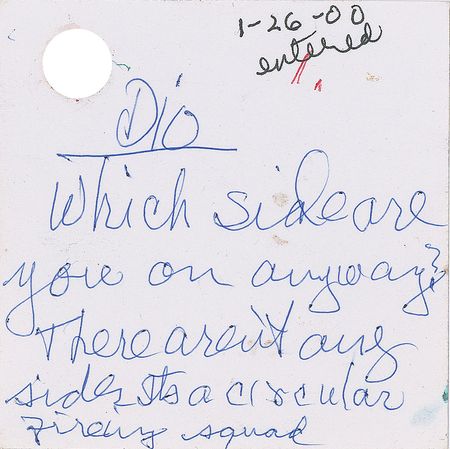 1-26-00
entered
Dio
Which side are
you on anyway?
There aren't any
sides Its a circular
fireing squad